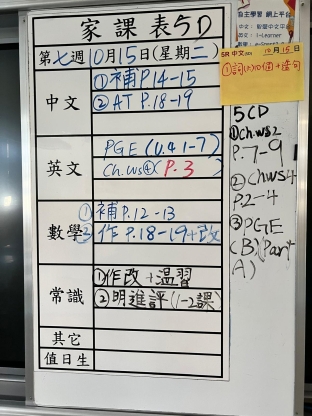 家課表5D
第七週10月15日(星期二)
中文
①補P.14-15
②AT P.18-19
英文
PGE (U.4 1-7)
Ch.ws④(P.3)
數學
①補P.12-13
②作P.18-19+改
常識
①作改+溫習
②明進評(1-2課)
其它
值日生
自主學習 網上平台
5R 中文 10月15日
①詞(六)10個+造句
5CD
①Ch.ws2
P.7-9
②Chws4
P.2-4
③PGE
(B)(Part
A)